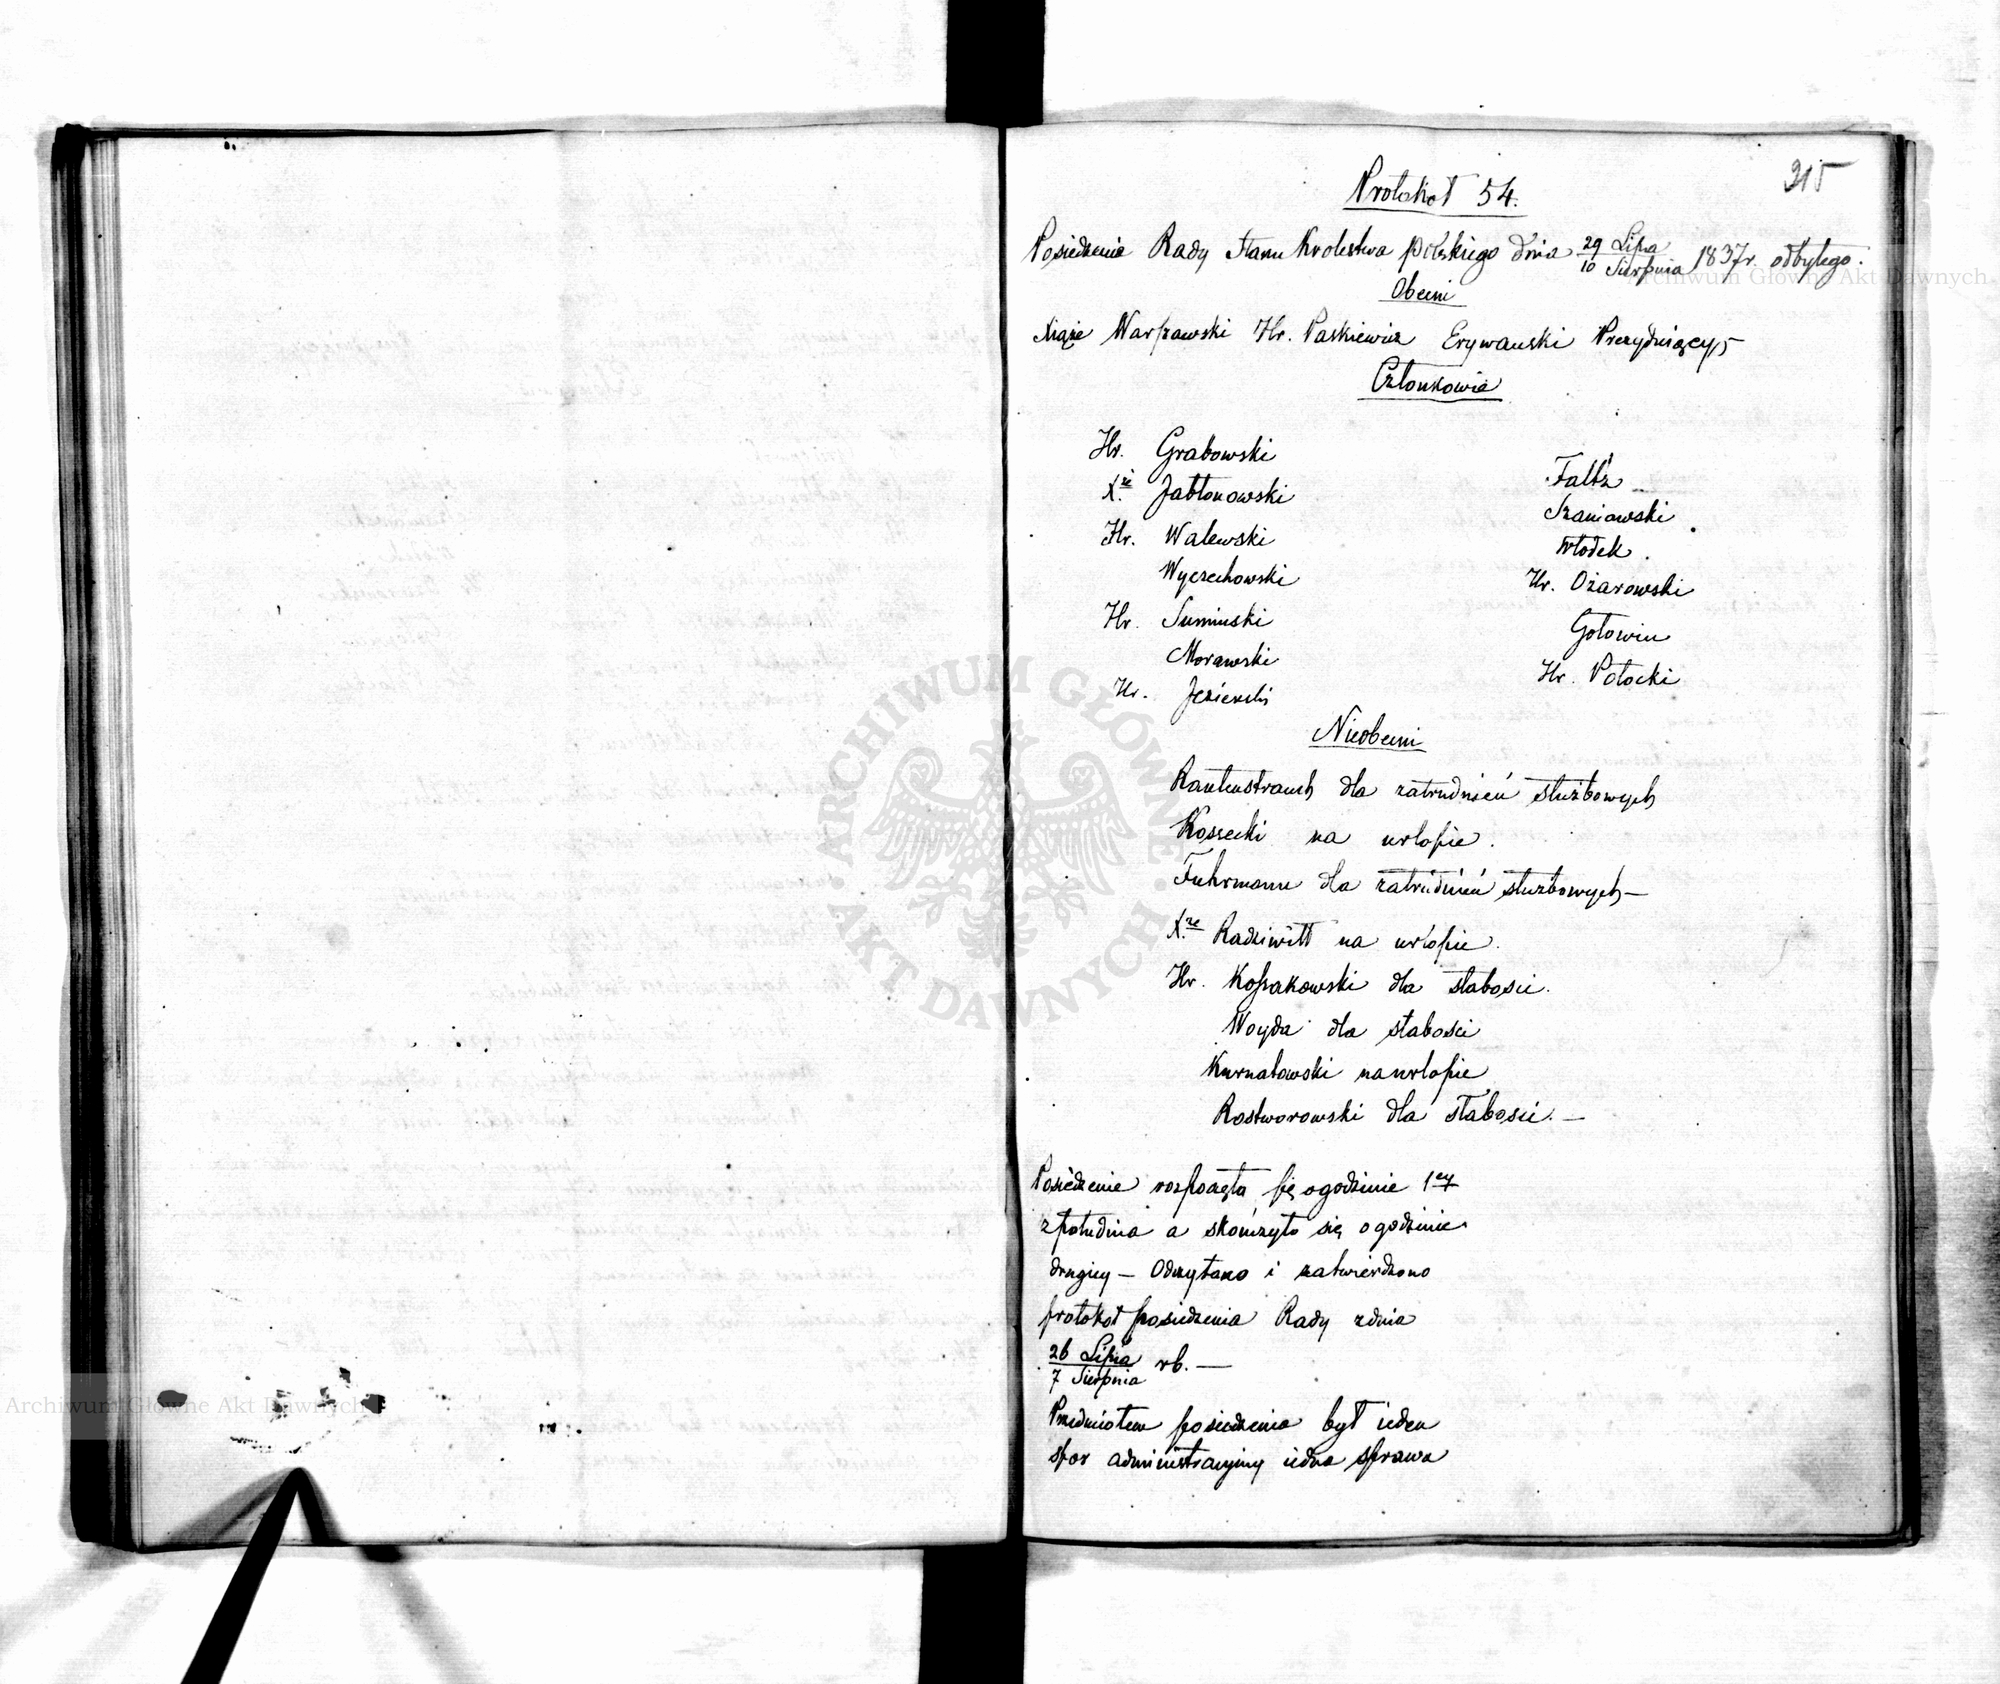 315
Protokół 54.
Posiedzenia Rady Stanu Krolestwa Polskiego dnia 29 Lipca / 10 Sierpnia 1837r. odbytego.
Obecni
Xiąże Warszawski Hr. Paskiewicz Erywanski Prezyduiący
Członkowie
Hr. Grabowski
X.że Jabłonowski
Hr. Walewski
Wyczechowski
Hr. Suminski
Morawski
Hr. Jezierski
Faltz
Szaniawski
Włodek
Hr. Ożarowski
Gołowin
Hr. Potocki
Nieobecni
Rautenstrauch dla zatrudnień służbowych
Kossecki na urlopie.
Fuhrmann dla zatrudnień służbowych —
X.że Radziwiłł na urlopie.
Hr. Kossakowski dla słabosci.
Woyda dla słabosci
Kurnatowski na urlopie
Rostworowski dla słabosci. —
Posiedzenie rozpoczęło się o godzinie 1ey
z południa a skończyło się o godzinie
drugiey — Odczytano i zatwierdzono
protokół posiedzenia Rady z dnia
26 Lipca / 7 Sierpnia rb. —
Przedmiotem posiedzenia był ieden
spor administracyiny iedna sprawa
ARCHIWUM GŁÓWNE AKT DAWNYCH
Archiwum Główne Akt Dawnych
Archiwum Główne Akt Dawnych